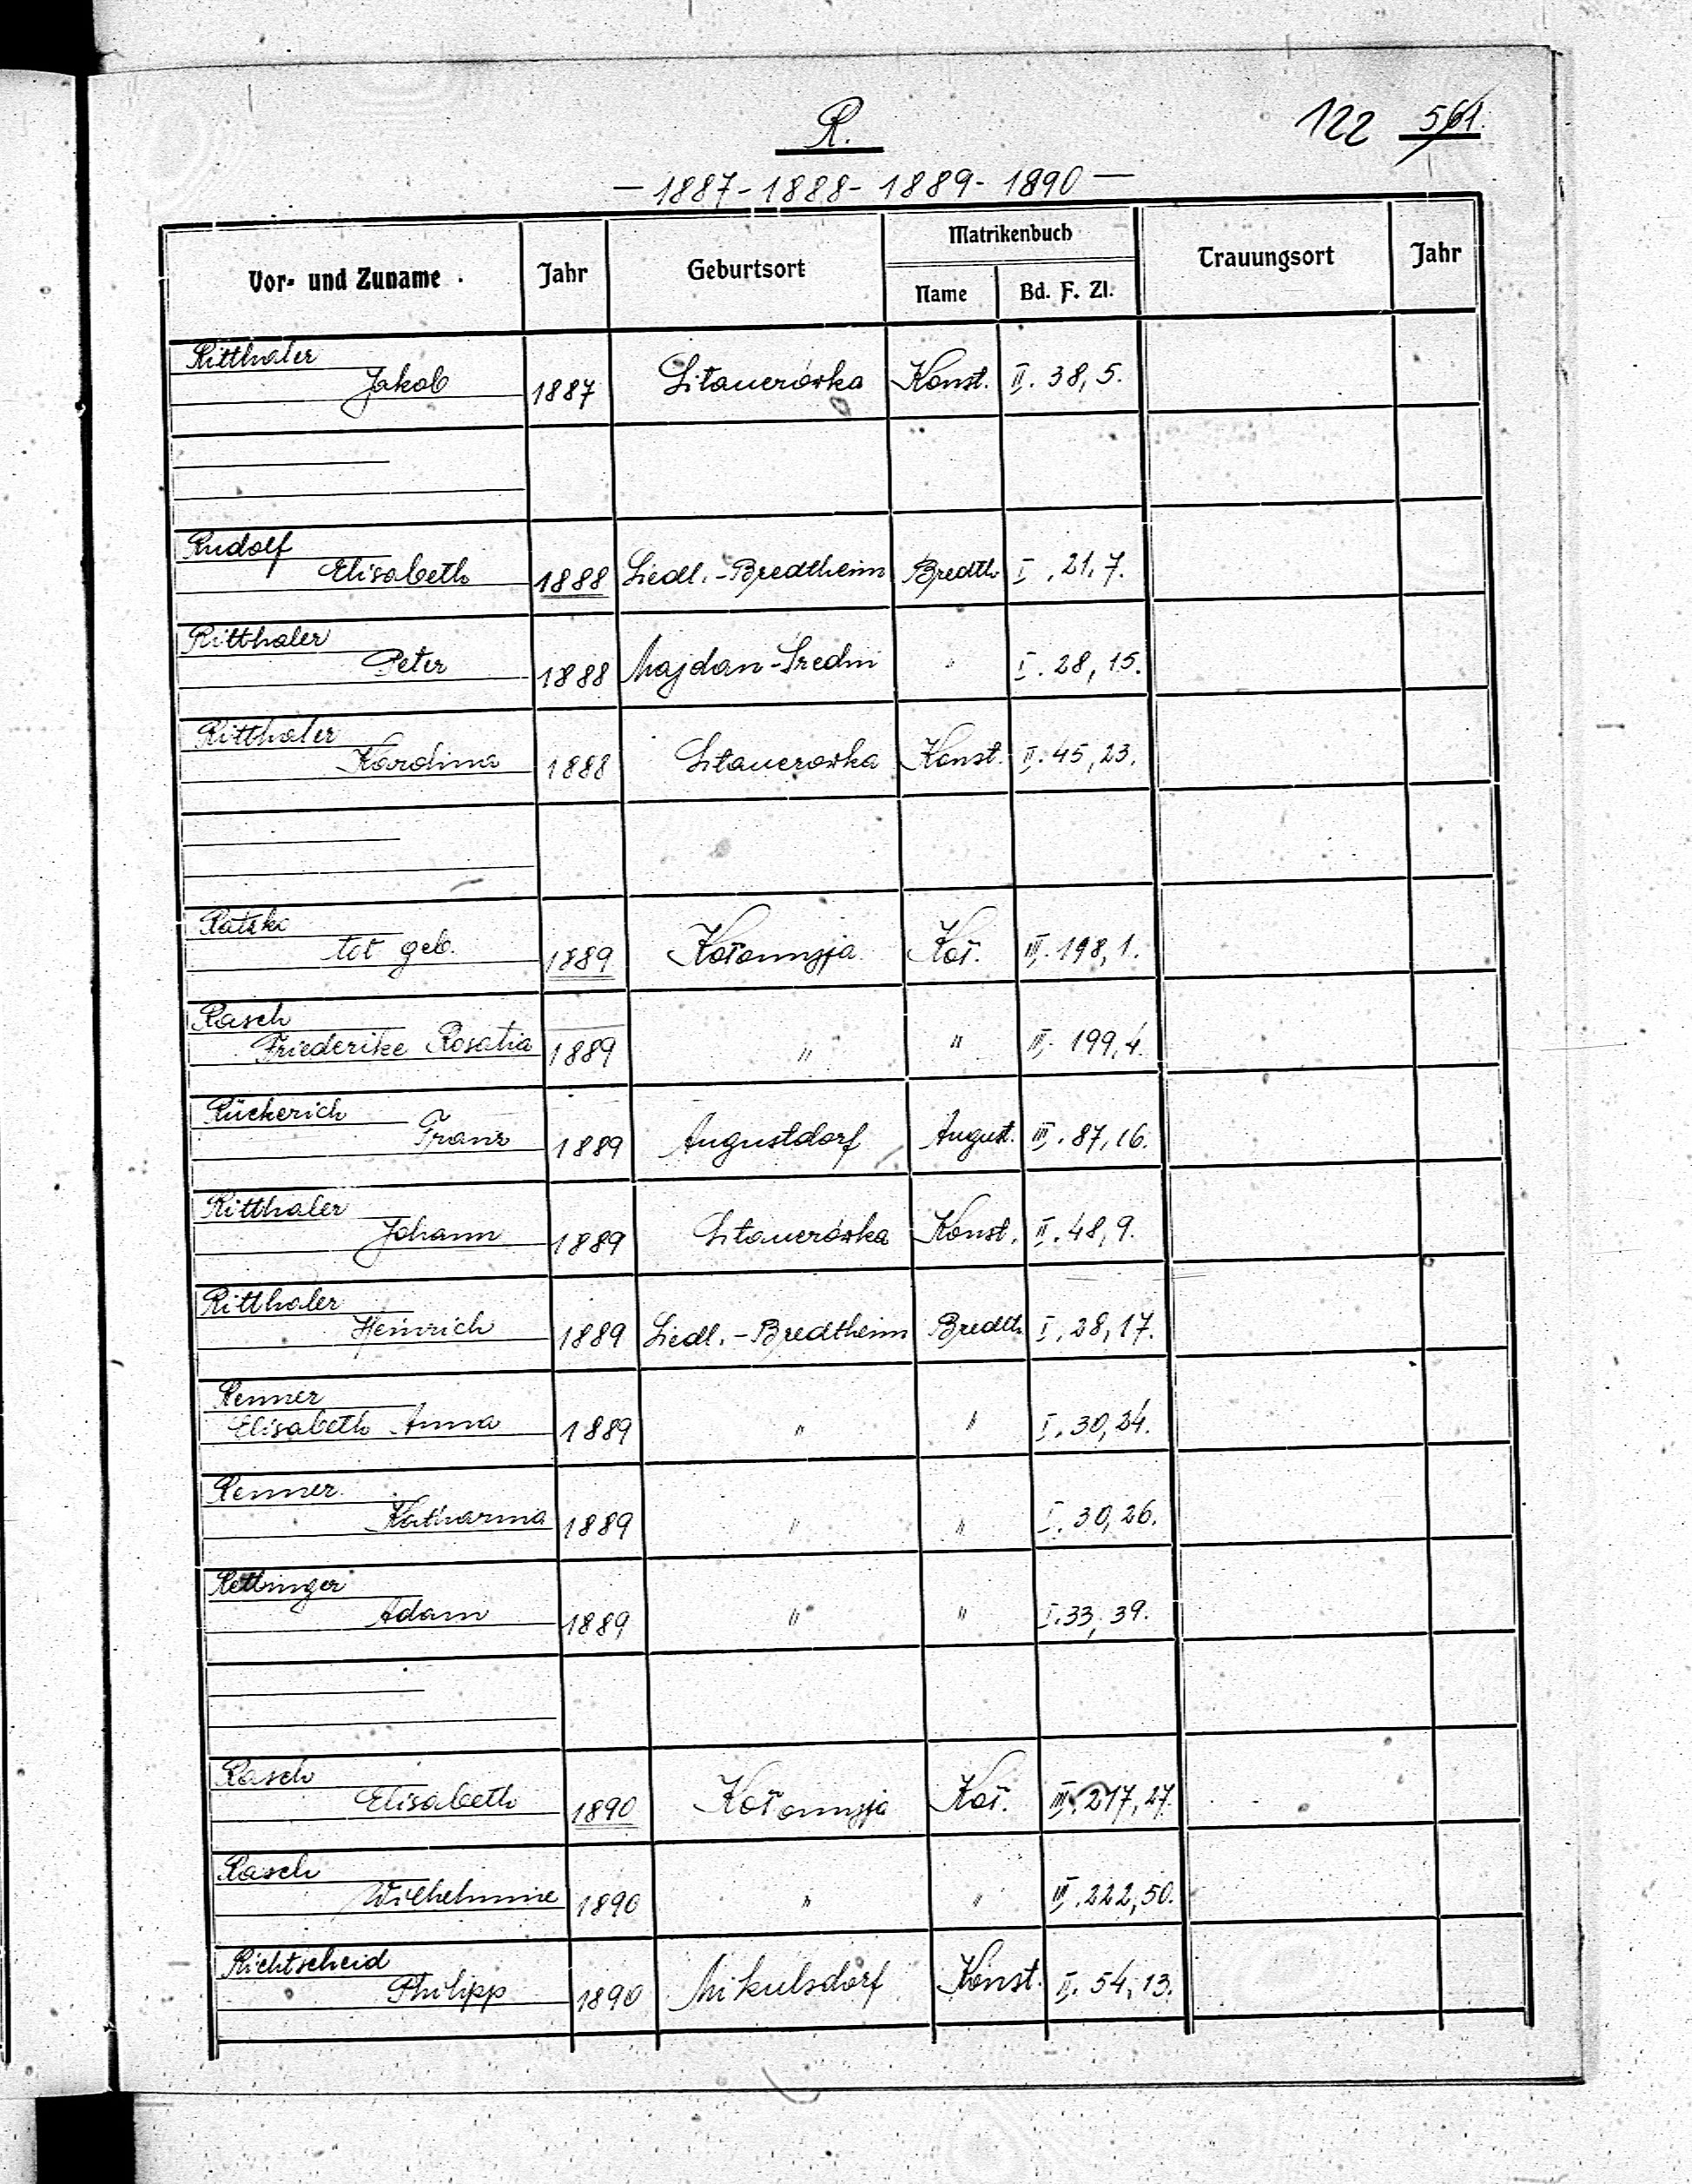 R. 122 561.
— 1887 - 1888 - 1889 - 1890 —
Vor- und Zuname. Jahr Geburtsort Matrikenbuch Trauungsort Jahr
Name Bd. F. Zl.
Ritthaler
Jakob 1887 Sitauerówka Konst. II. 38, 5.
Rudolf
Elisabeth 1888 Siedl.-Bredtheim Bredth I. 21, 7.
Ritthaler
Peter 1888 Majdan-Sredni " I. 28, 15.
Ritthaler
Karolina 1888 Sitauerowka Konst. II. 45, 23.
Ratzke
tot geb. 1889 Kołomyja Koł. III. 198, 1.
Rasch
Friederike Rosalia 1889 " " III. 199, 4.
Rückerich
Franz 1889 Augustdorf August. III. 87, 16.
Ritthaler
Johann 1889 Sitauerówka Konst. II. 48, 9.
Ritthaler
Heinrich 1889 Siedl.-Bredtheim Bredth. I. 28, 17.
Renner
Elisabeth Anna 1889 " " I. 30, 24.
Renner
Katharina 1889 " " I. 30, 26.
Rettinger
Adam 1889 " " I. 33, 39.
Rasch
Elisabeth 1890 Kołomyja Koł. III. 217, 27.
Rasch
Wilhelmine 1890 " " III. 222, 50.
Richtscheid
Philipp 1890 Mikulsdorf Konst. II. 54, 13.